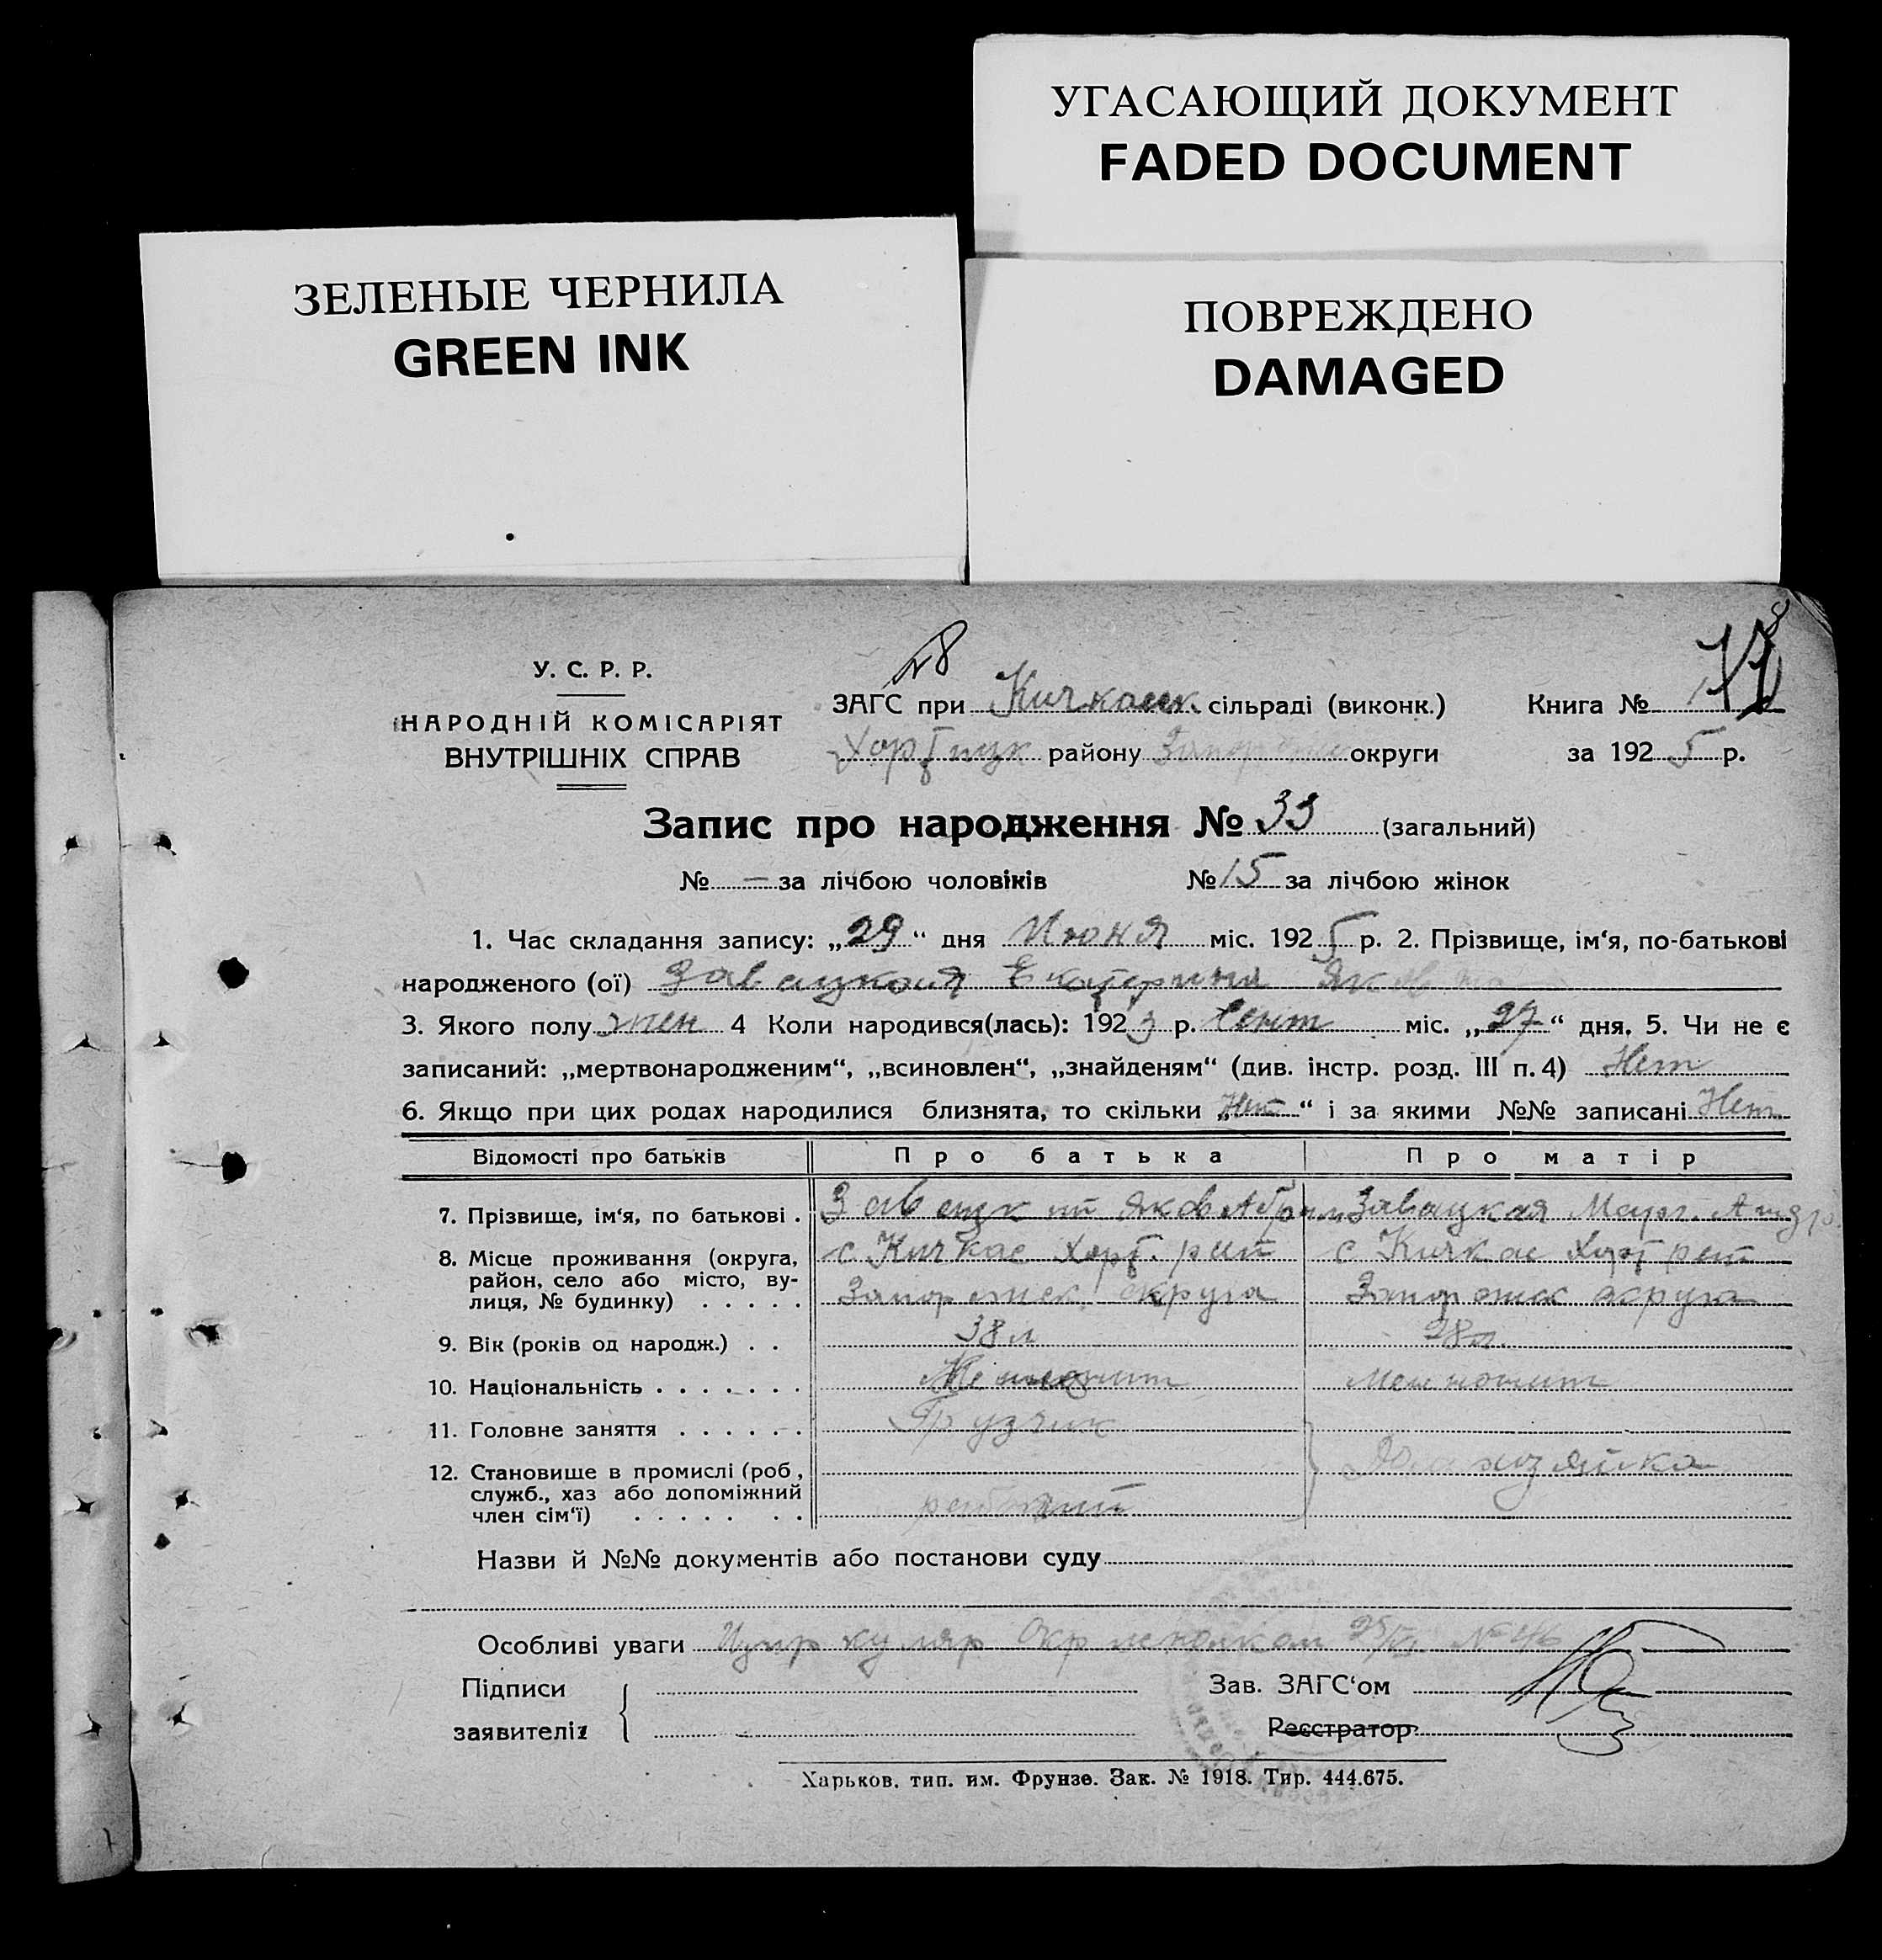 УГАСАЮЩИЙ ДОКУМЕНТ
FADED DOCUMENT
ЗЕЛЕНЫЕ ЧЕРНИЛА
GREEN INK
ПОВРЕЖДЕНО
DAMAGED
8
У. С. Р. Р.
НАРОДНІЙ КОМІСАРІЯТ
ВНУТРІШНІХ СПРАВ
ЗАГС при Кичкасск. сільраді (виконк.) Книга №
Хортицк району Запорожск округи за 1925 р.
Запис про народження № 33 (загальний)
№ — за лічбою чоловіків № 15 за лічбою жінок
1. Час складання запису: „29“ дня Июня міс. 1925 р. 2. Прізвище, ім‘я, по-батькові
народженого (ої) Завацкая Екатерина Яковл
3. Якого полу жен 4 Коли народився(лась): 1923 р. Сент міс. „27“ дня. 5. Чи не є
записаний: „мертвонародженим“, „всиновлен“, „знайденям“ (див. інстр. розд. III п. 4) Нет
6. Якщо при цих родах народилися близнята, то скільки „Нет“ і за якими №№ записані Нет
Відомості про батьків Про батька Про матір
7. Прізвище, ім‘я, по батькові . Завацкий Яков Абрам Завацкая Марг.
8. Місце проживання (округа, район, село або місто, ву-лиця, № будинку) . . . . . с Кичкас Хорт. рай Запорожск. округа с Кичкас Хорт рай Запорожск округа
9. Вік (років од народж.) . . 38 л 28 л.
10. Національність . . . . . . . Меннонит Меннонит
11. Головне заняття . . . . . . Грузчик
12. Становище в промислі (роб, служб., хаз або допоміжний член сім‘ї) . . . . . . . рабочий Домохозяйка
Назви й №№ документів або постанови суду
Особливі уваги Циркуляр Окрисполкома № 46
Підписи заявителів
Зав. ЗАГС‘ом
Реєстратор
Харьков. тип. им. Фрунзе. Зак. № 1918. Тир. 444.675.